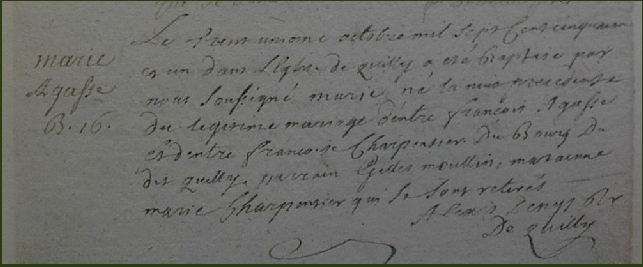 marie
Agasse
B. 16.
Le Trent unieme octobre mil sept Cent cinquante
et un dans L'Eglise de quilly a eté Baptisée par
nous soussigné marie né la nuit precedente
du legitime mariage d'entre françois Agasse
et d'entre francoise Charpentier du Bourg du
dit quilly, parrain Gilles moullois, maraine
marie Charpentier qui se sont retirés
Denys
De quilly